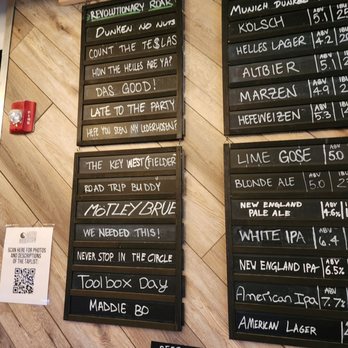 REVOLUTIONARY ROAR
DUNKEN NO NUTS
COUNT THE TE$LAS
HOW THE HELLES ARE YA?
DAS GOOD!
LATE TO THE PARTY
HEFE YOU SEEN MY LEDERHOSEN?
MUNICH DUNKEL
KOLSCH 5.1
HELLES LAGER 4.9
ALTBIER 5.1
MARZEN 4.9
HEFEWEIZEN
ABV
IBU
THE KEY WEST (FIELDER
ROAD TRIP BUDDY
MÖTLEY BRUE
WE NEEDED THIS!
NEVER STOP IN THE CIRCLE
Toolbox Day
MADDIE BO
LIME GOSE 5.0
BLONDE ALE 5.0
NEW ENGLAND
PALE ALE 4.6%
WHITE IPA 6.4
NEW ENGLAND IPA 6.5%
American IPA 7.7%
AMERICAN LAGER
SCAN HERE FOR PHOTOS
AND DESCRIPTIONS
OF THE TAPLIST: